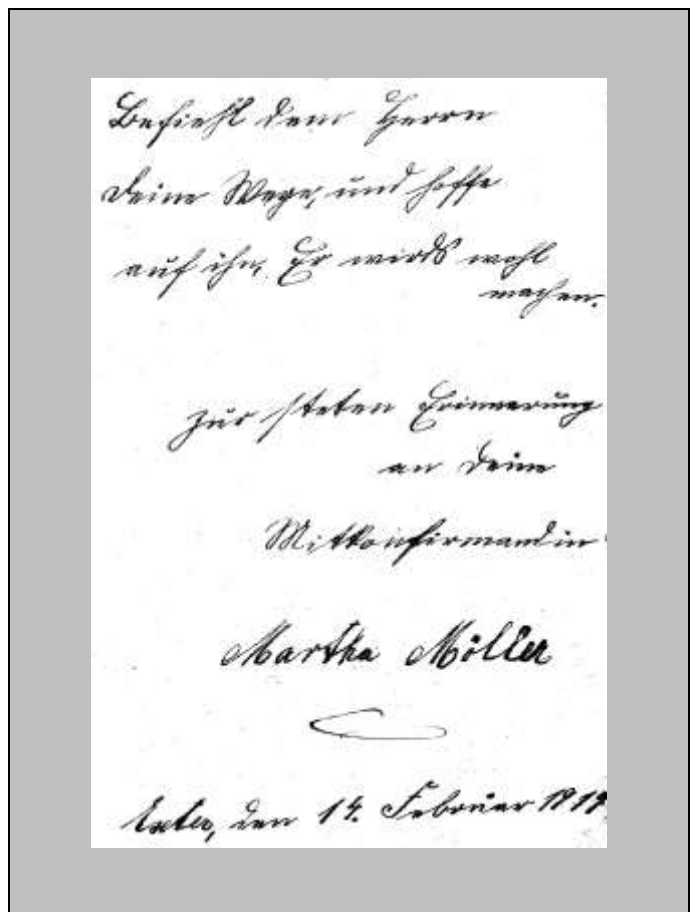 Befiehl dem Herrn
deine Wege, und hoffe
auf ihn, Er wirds wohl
machen.
Zur steten Erinnerung
an deine
Mitkonfirmandin
Martha Möller
Exter, den 14. Februar 1919